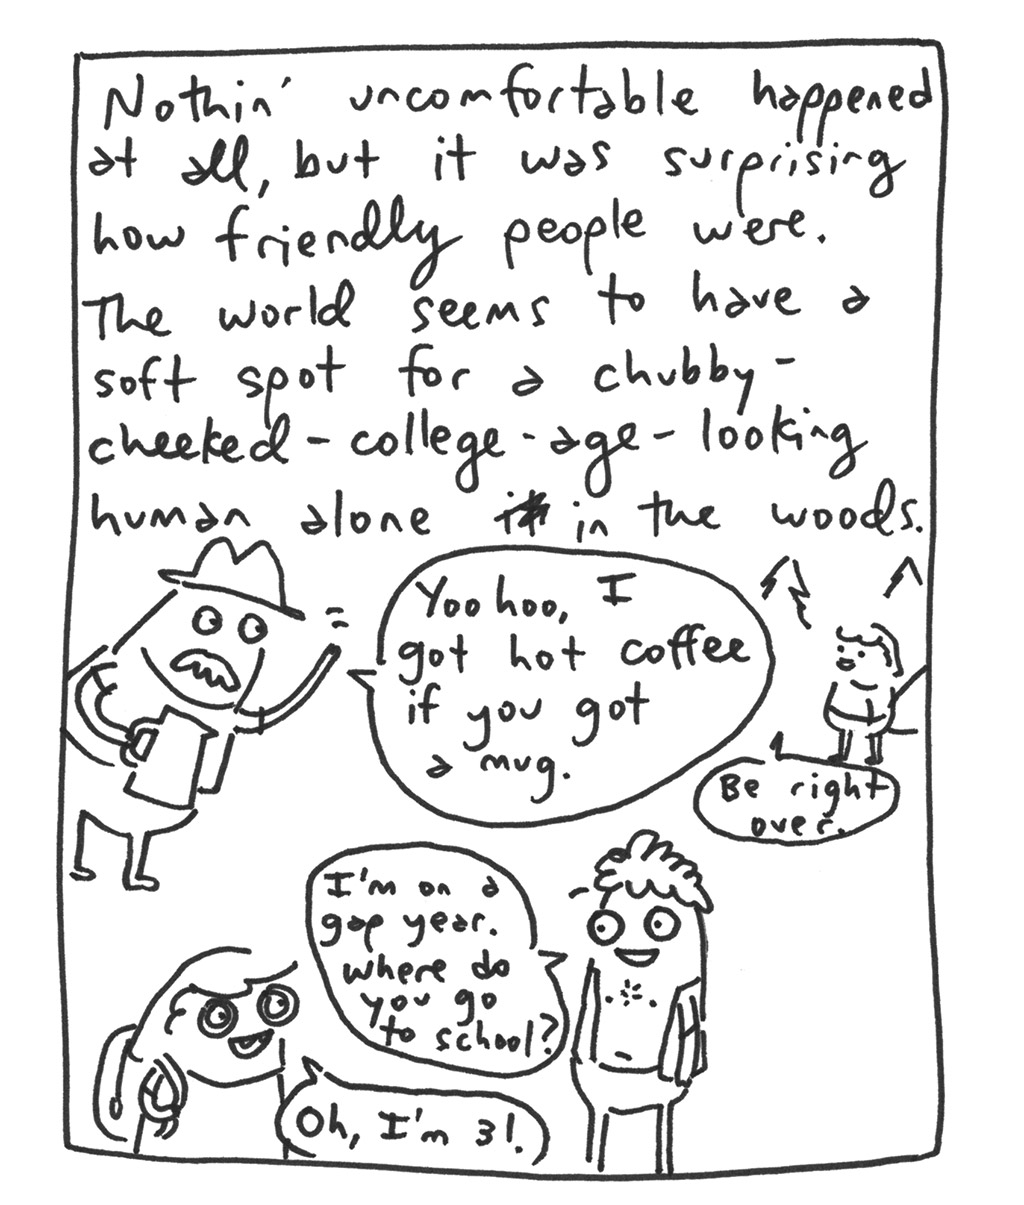 Nothin' uncomfortable happened
at all, but it was surprising
how friendly people were.
The world seems to have a
soft spot for a chubby-
cheeked-college-age-looking
human alone in the woods.
Yoo hoo, I
got hot coffee
if you got
a mug.
Be right
over.
I'm on a
gap year.
Where do
you go
to school?
Oh, I'm 31.